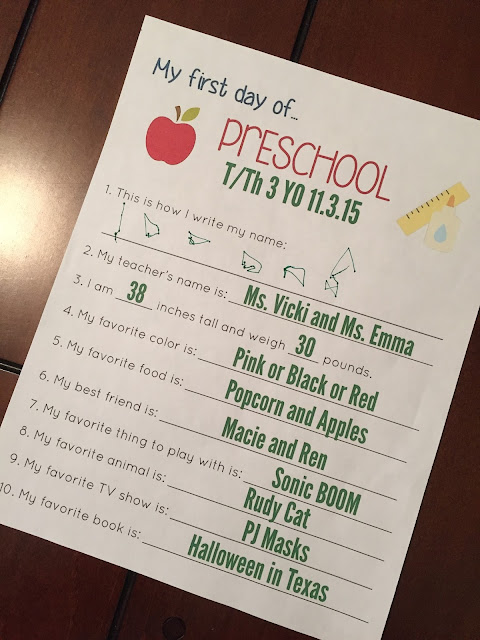 My first day of...
PRESCHOOL
T/Th 3 YO 11.3.15
1. This is how I write my name:
2. My teacher's name is: Ms. Vicki and Ms. Emma
3. I am 38 inches tall and weigh 30 pounds.
4. My favorite color is: Pink or Black or Red
5. My favorite food is: Popcorn and Apples
6. My best friend is: Macie and Ren
7. My favorite thing to play with is: Sonic BOOM
8. My favorite animal is: Rudy Cat
9. My favorite TV show is: PJ Masks
10. My favorite book is: Halloween in Texas